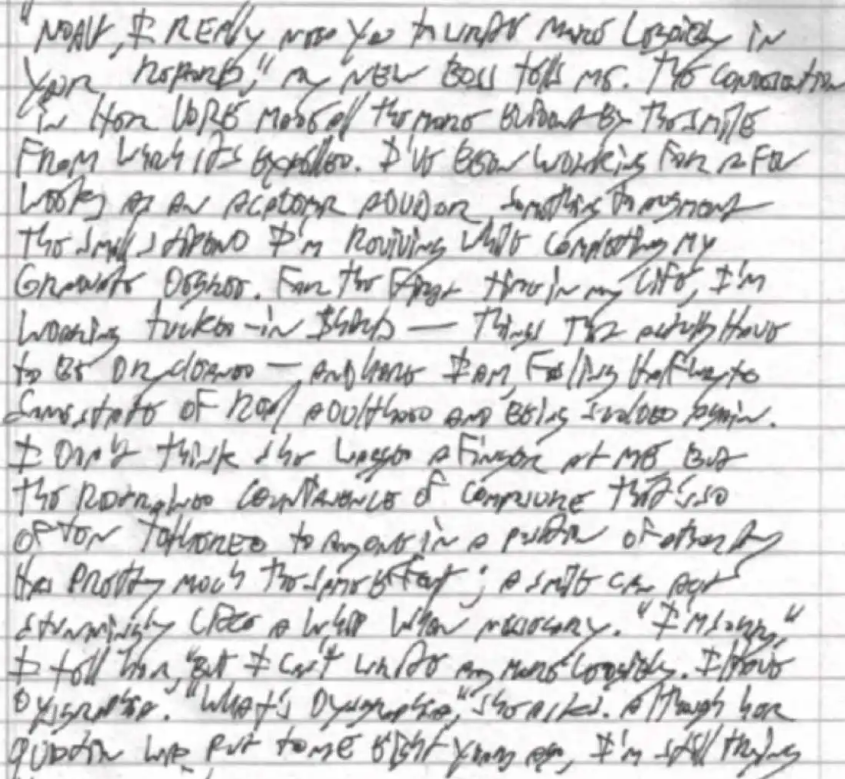 "NOAH, I REALLY need you to write more legibly in
your reports," my NEW Boss tells me. The condescension
in Her voice made all the more evident by the smile
From which it's expelled. I've been working For a few
weeks as an academic advisor, something to augment
the small stipend I'm receiving while completing my
Graduate Degree. For the First time in my life, I'm
wearing tucked-in shirts — things that actually have
to be dry cleaned — and here I am, Feeling halfway to
some state of real adulthood and being scolded again.
I don't think she wagged a finger at me but
the countenance of composure that's so
often tethered to anyone in a position of authority
Has pretty much the same effect; a smile can act
stunningly like a whip when necessary. "I'm sorry,"
I tell her, "But I can't write any more legibly. I have
Dysgraphia. "What's Dysgraphia," she asks. Although her
question was put to me eight years ago, I'm still trying